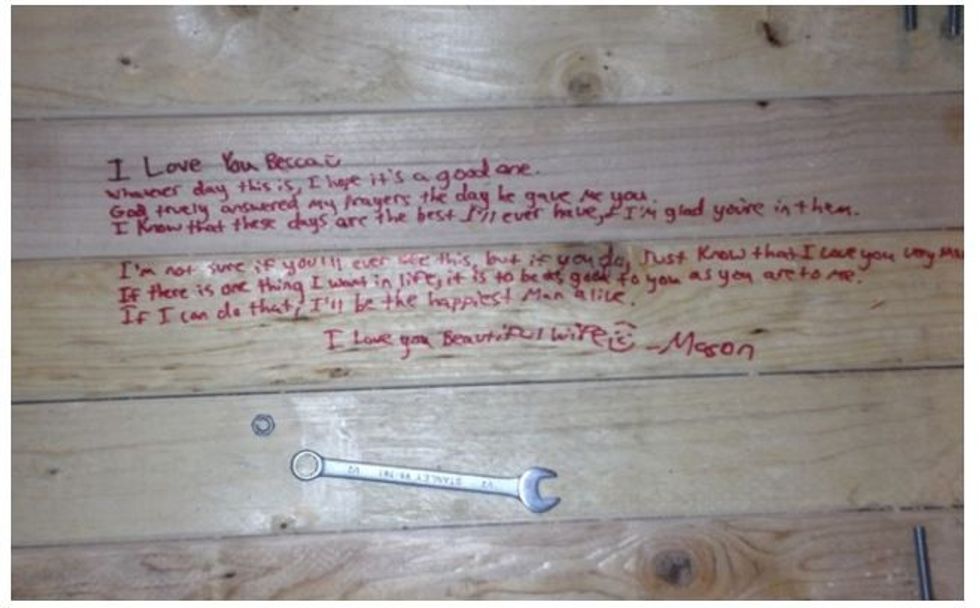 I Love You Becca
Whatever day this is, I hope it's a good one.
God truely answered my prayers the day he gave me you.
I know that these days are the best I'll ever have, & I'm glad you're in them.
I'm not sure if you'll ever see this, but if you do, Just know that I love you very
If there is one thing I want in life, it is to be as good to you as you are to me.
If I can do that, I'll be the happiest Man alive.
I Love you Beautiful Wife
-Mason
1/2 STANLEY 1/2